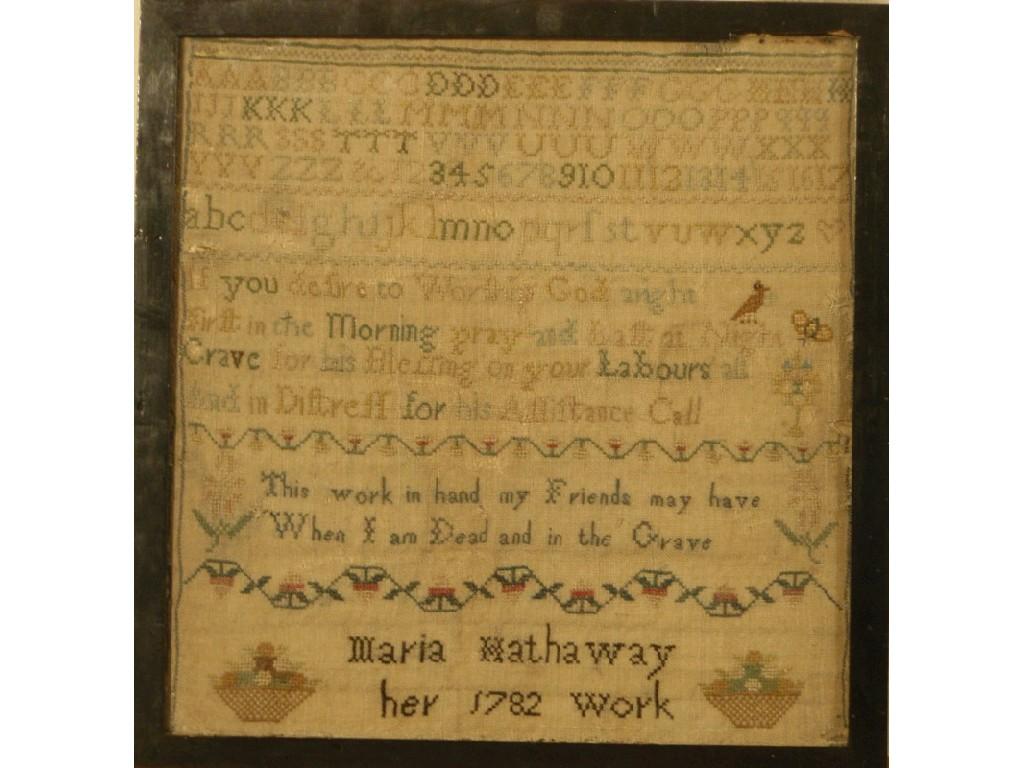 AAABBBCCCDDDEEEFFFGGGHHHH
IJIKKKLLLMMMNNNOOOPPPqqq
RRRSSSTTTVVVUUUWWWXXX
YYYZZZ&c1234567891011121314151617
abcdefghijklmnopqrſstvuwxyz
If you deſire to Worſhip God aright
Firſt in the Morning pray and Laſt at Night
Crave for his Bleſſing on your Labours all
And in Diſtreſſ for his Aſſiſtance Call
This work in hand my Friends may have
When I am Dead and in the Grave
Maria Hathaway
her 1782 Work